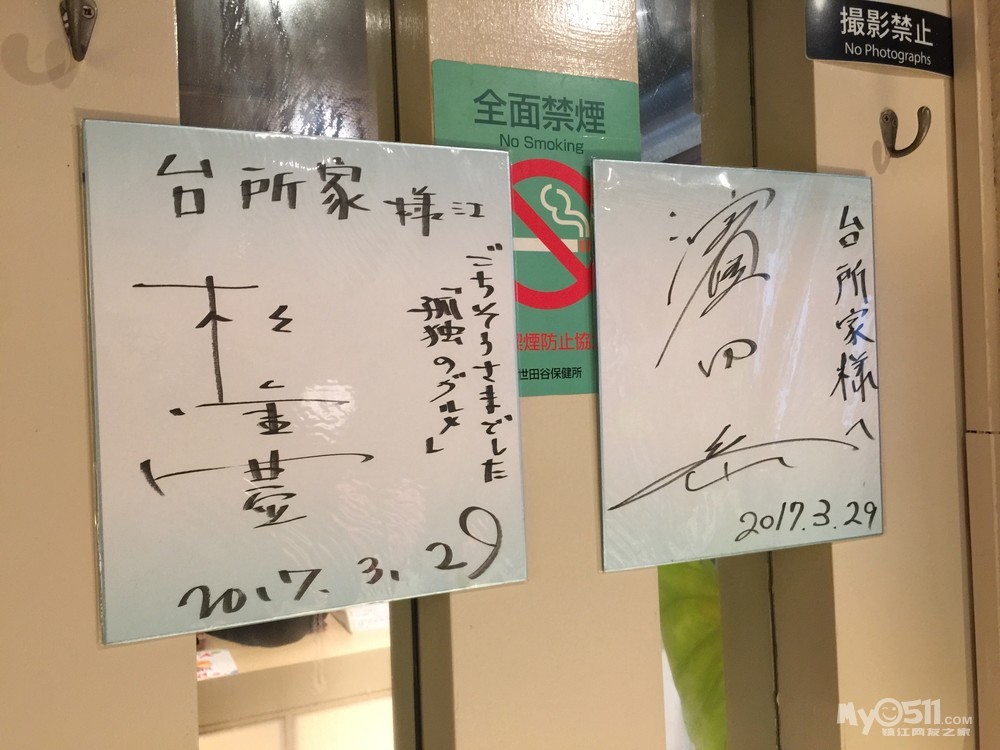 撮影禁止
No Photographs
全面禁煙
No Smoking
煙防止協
世田谷保健所
台所家 様江
ごちそうさまでした
「孤独のグルメ」
2017.3.29
台所家様へ
濱田岳
2017.3.29
My0511.COM
镇江网友之家